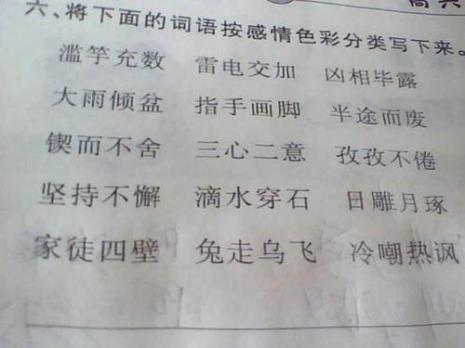 六、将下面的词语按感情色彩分类写下来。
滥竽充数 雷电交加 凶相毕露
大雨倾盆 指手画脚 半途而废
锲而不舍 三心二意 孜孜不倦
坚持不懈 滴水穿石 日雕月琢
家徒四壁 兔走乌飞 冷嘲热讽